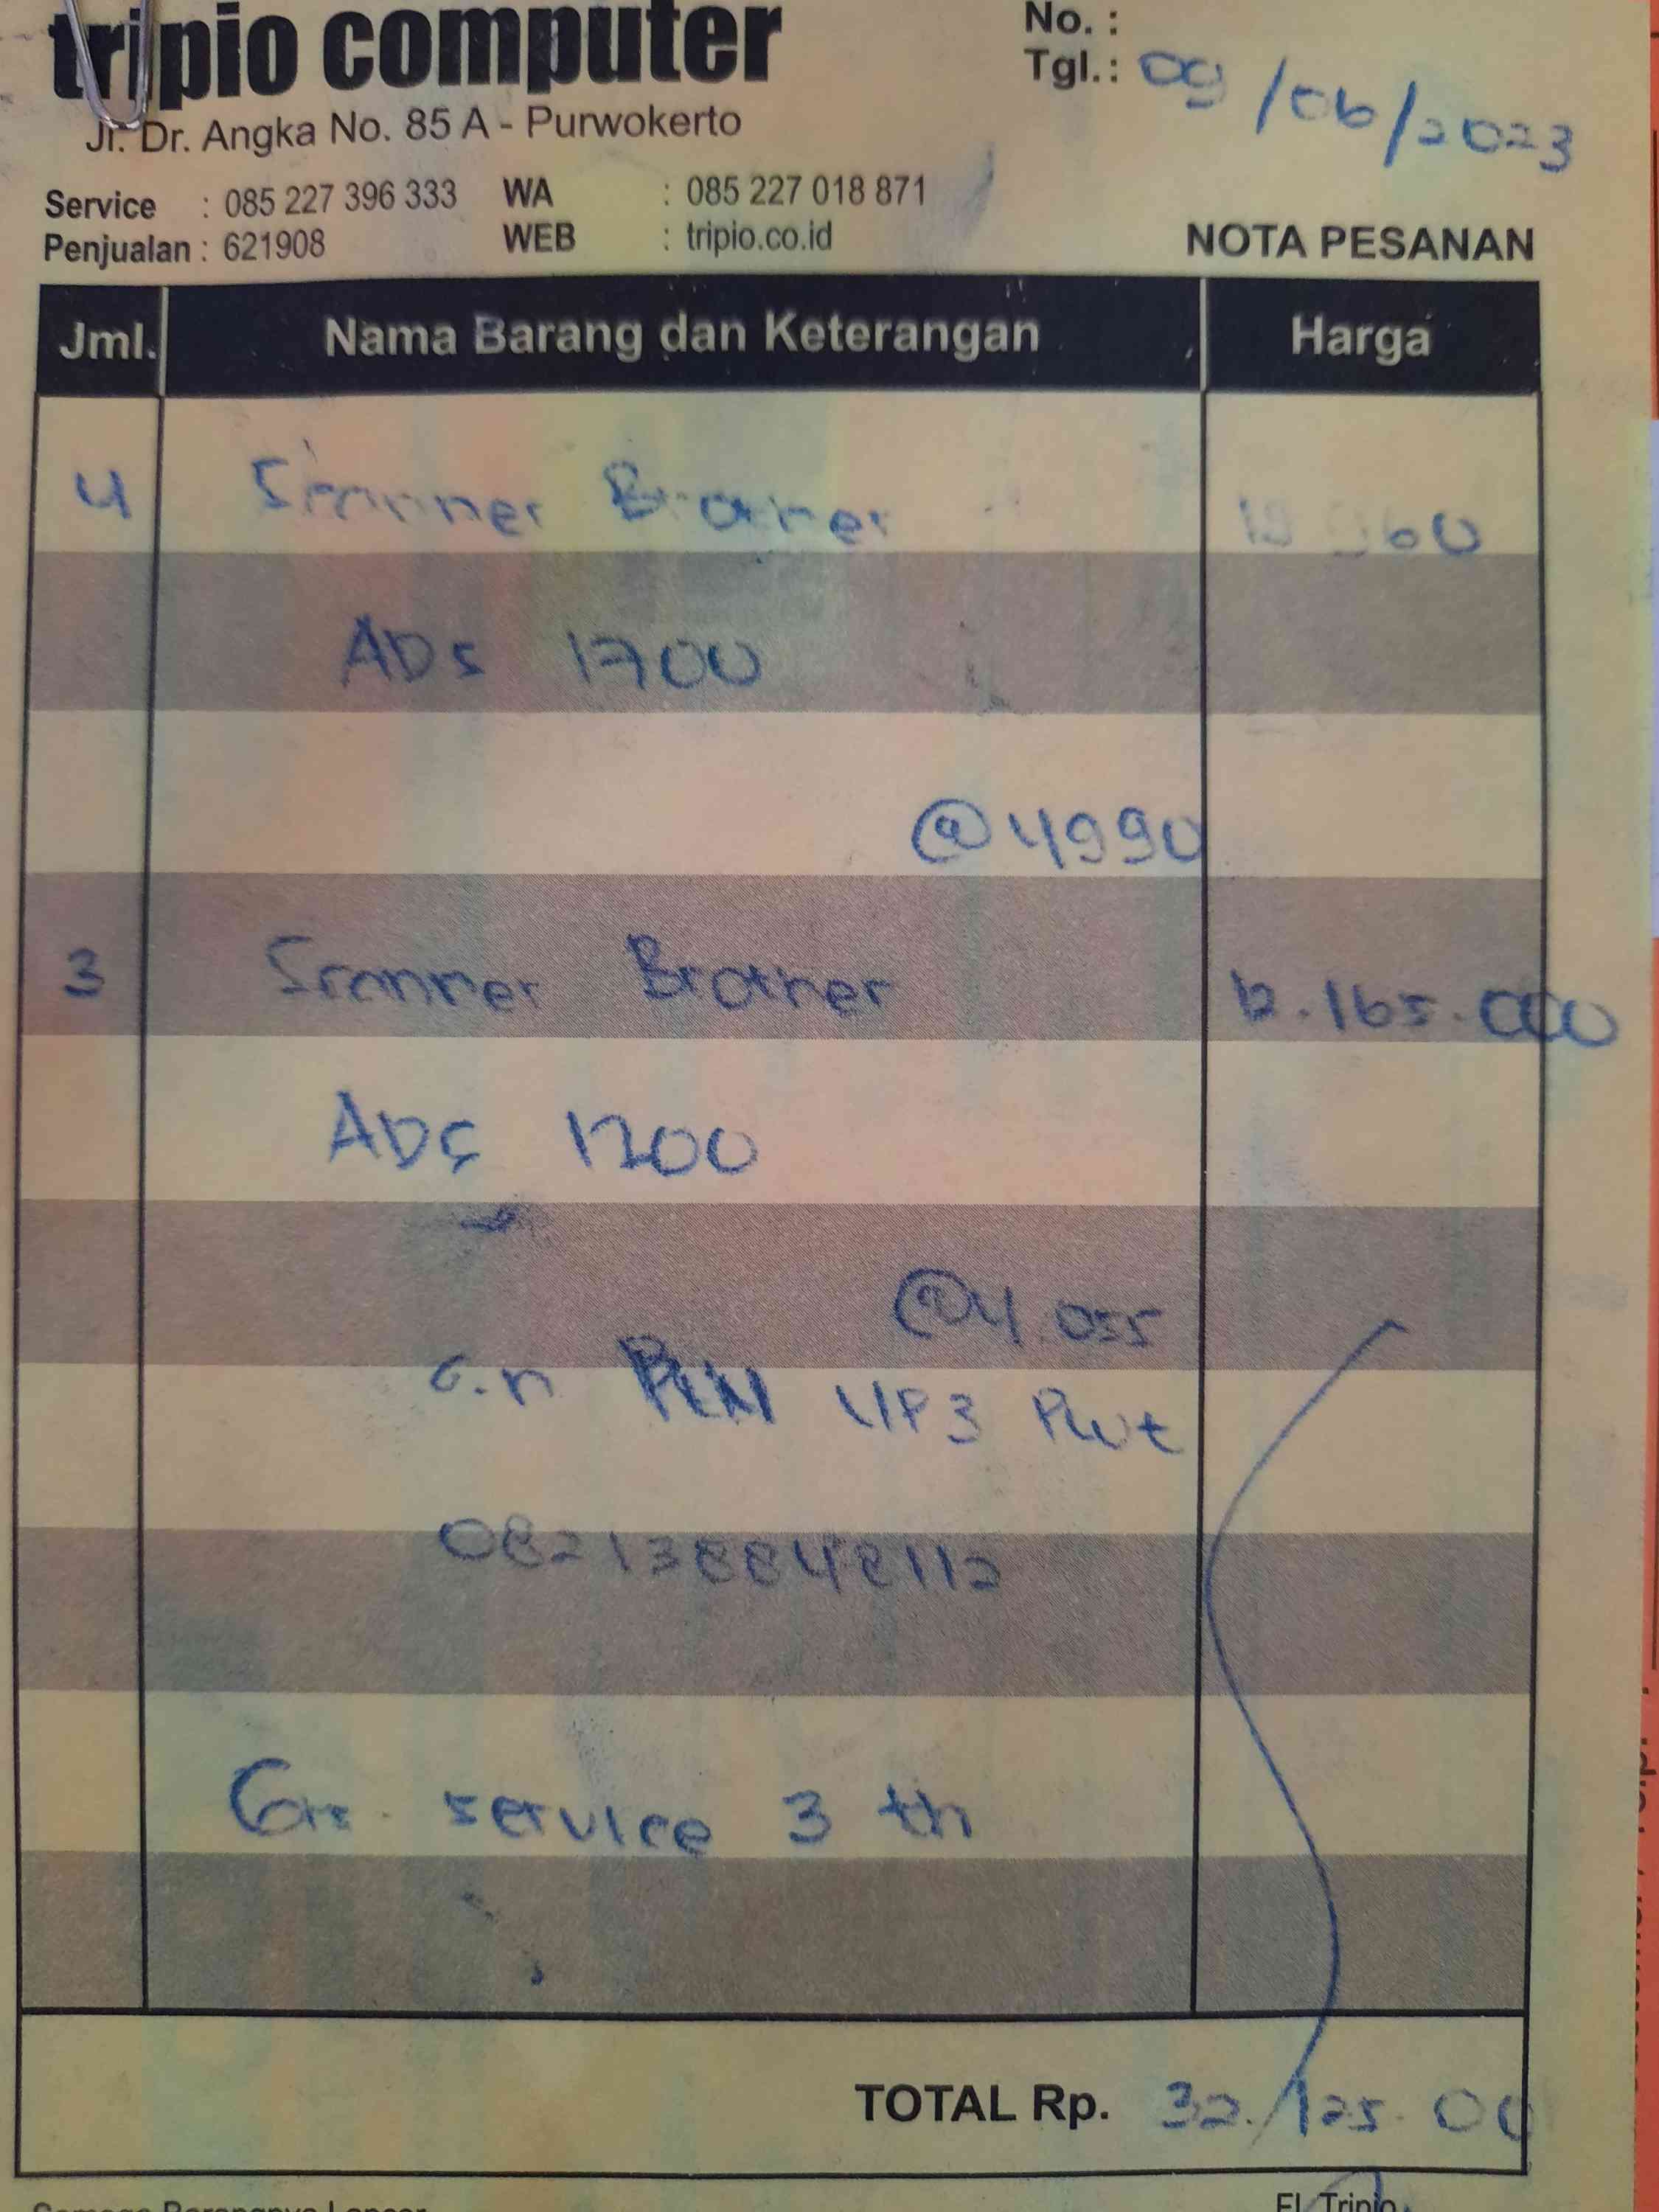 tripio computer
No. :
Tgl. : 09/06/2023
Jl. Dr. Angka No. 85 A - Purwokerto
Service : 085 227 396 333 WA : 085 227 018 871
Penjualan : 621908 WEB : tripio.co.id
NOTA PESANAN
Jml. Nama Barang dan Keterangan Harga
4 Scanner Brother 960
ADS 1700
@4990
3 Scanner Brother 12.165.000
ADS 1200
@4.055
a.n PLN UP3 Pwt
082138848112
Gar. service 3 th
TOTAL Rp. 32.125.00
Semoga Barangnya Lancar
El Tripio